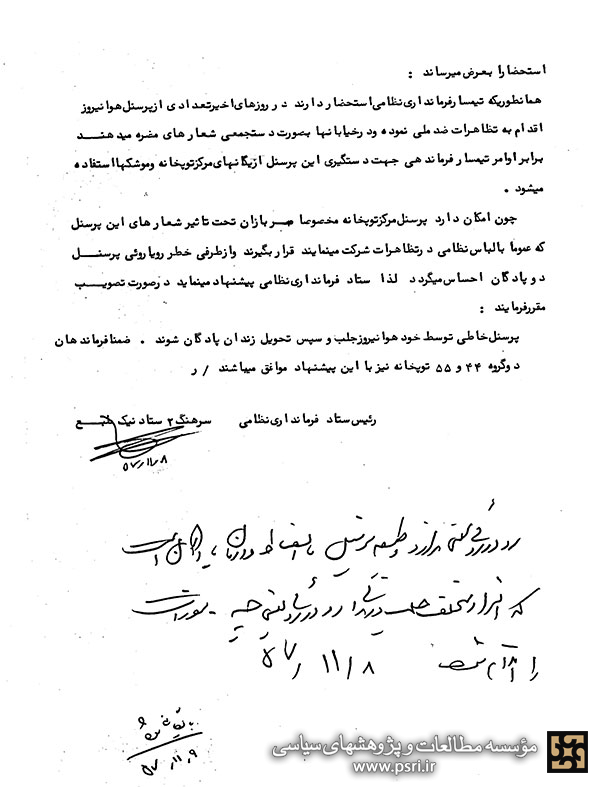 استحضارا بعرض میرساند :
همانطوریکه تیمسار فرمانداری نظامی استحضار دارند در روزهای اخیر تعدادی از پرسنل هوانیروز
اقدام به تظاهرات ضد ملی نموده ودرخیابانها بصورت دستجمعی شعارهای مضره میدهند
برابر اوامر تیمسار فرماندهی جهت دستگیری این پرسنل ازیگانهای مرکز توپخانه وموشکها استفاده
میشود .
چون امکان دارد پرسنل مرکز توپخانه مخصوصا سربازان تحت تاثیر شعارهای این پرسنل
که عموما بالباس نظامی درتظاهرات شرکت مینمایند قرار بگیرند وازطرفی خطر رویاروئی پرسنل
دو پادگان احساس میگردد لذا ستاد فرمانداری نظامی پیشنهاد مینماید درصورت تصویب
مقررفرمایند :
پرسنل خاطی توسط خود هوانیروز جلب و سپس تحویل زندان پادگان شوند . ضمنا فرماندهان
دوگروه ۴۴ و ۵۵ توپخانه نیز با این پیشنهاد موافق میباشند / ر
رئیس ستاد فرمانداری نظامی سرهنگ ۲ ستاد نیک طبع
۵۷/۱۱/۸
که افراد متخلف
را اقدام ۵۷/۱۱/۸
۵۷/۱۱/۹
مؤسسه مطالعات و پژوهشهای سیاسی
www.psri.ir